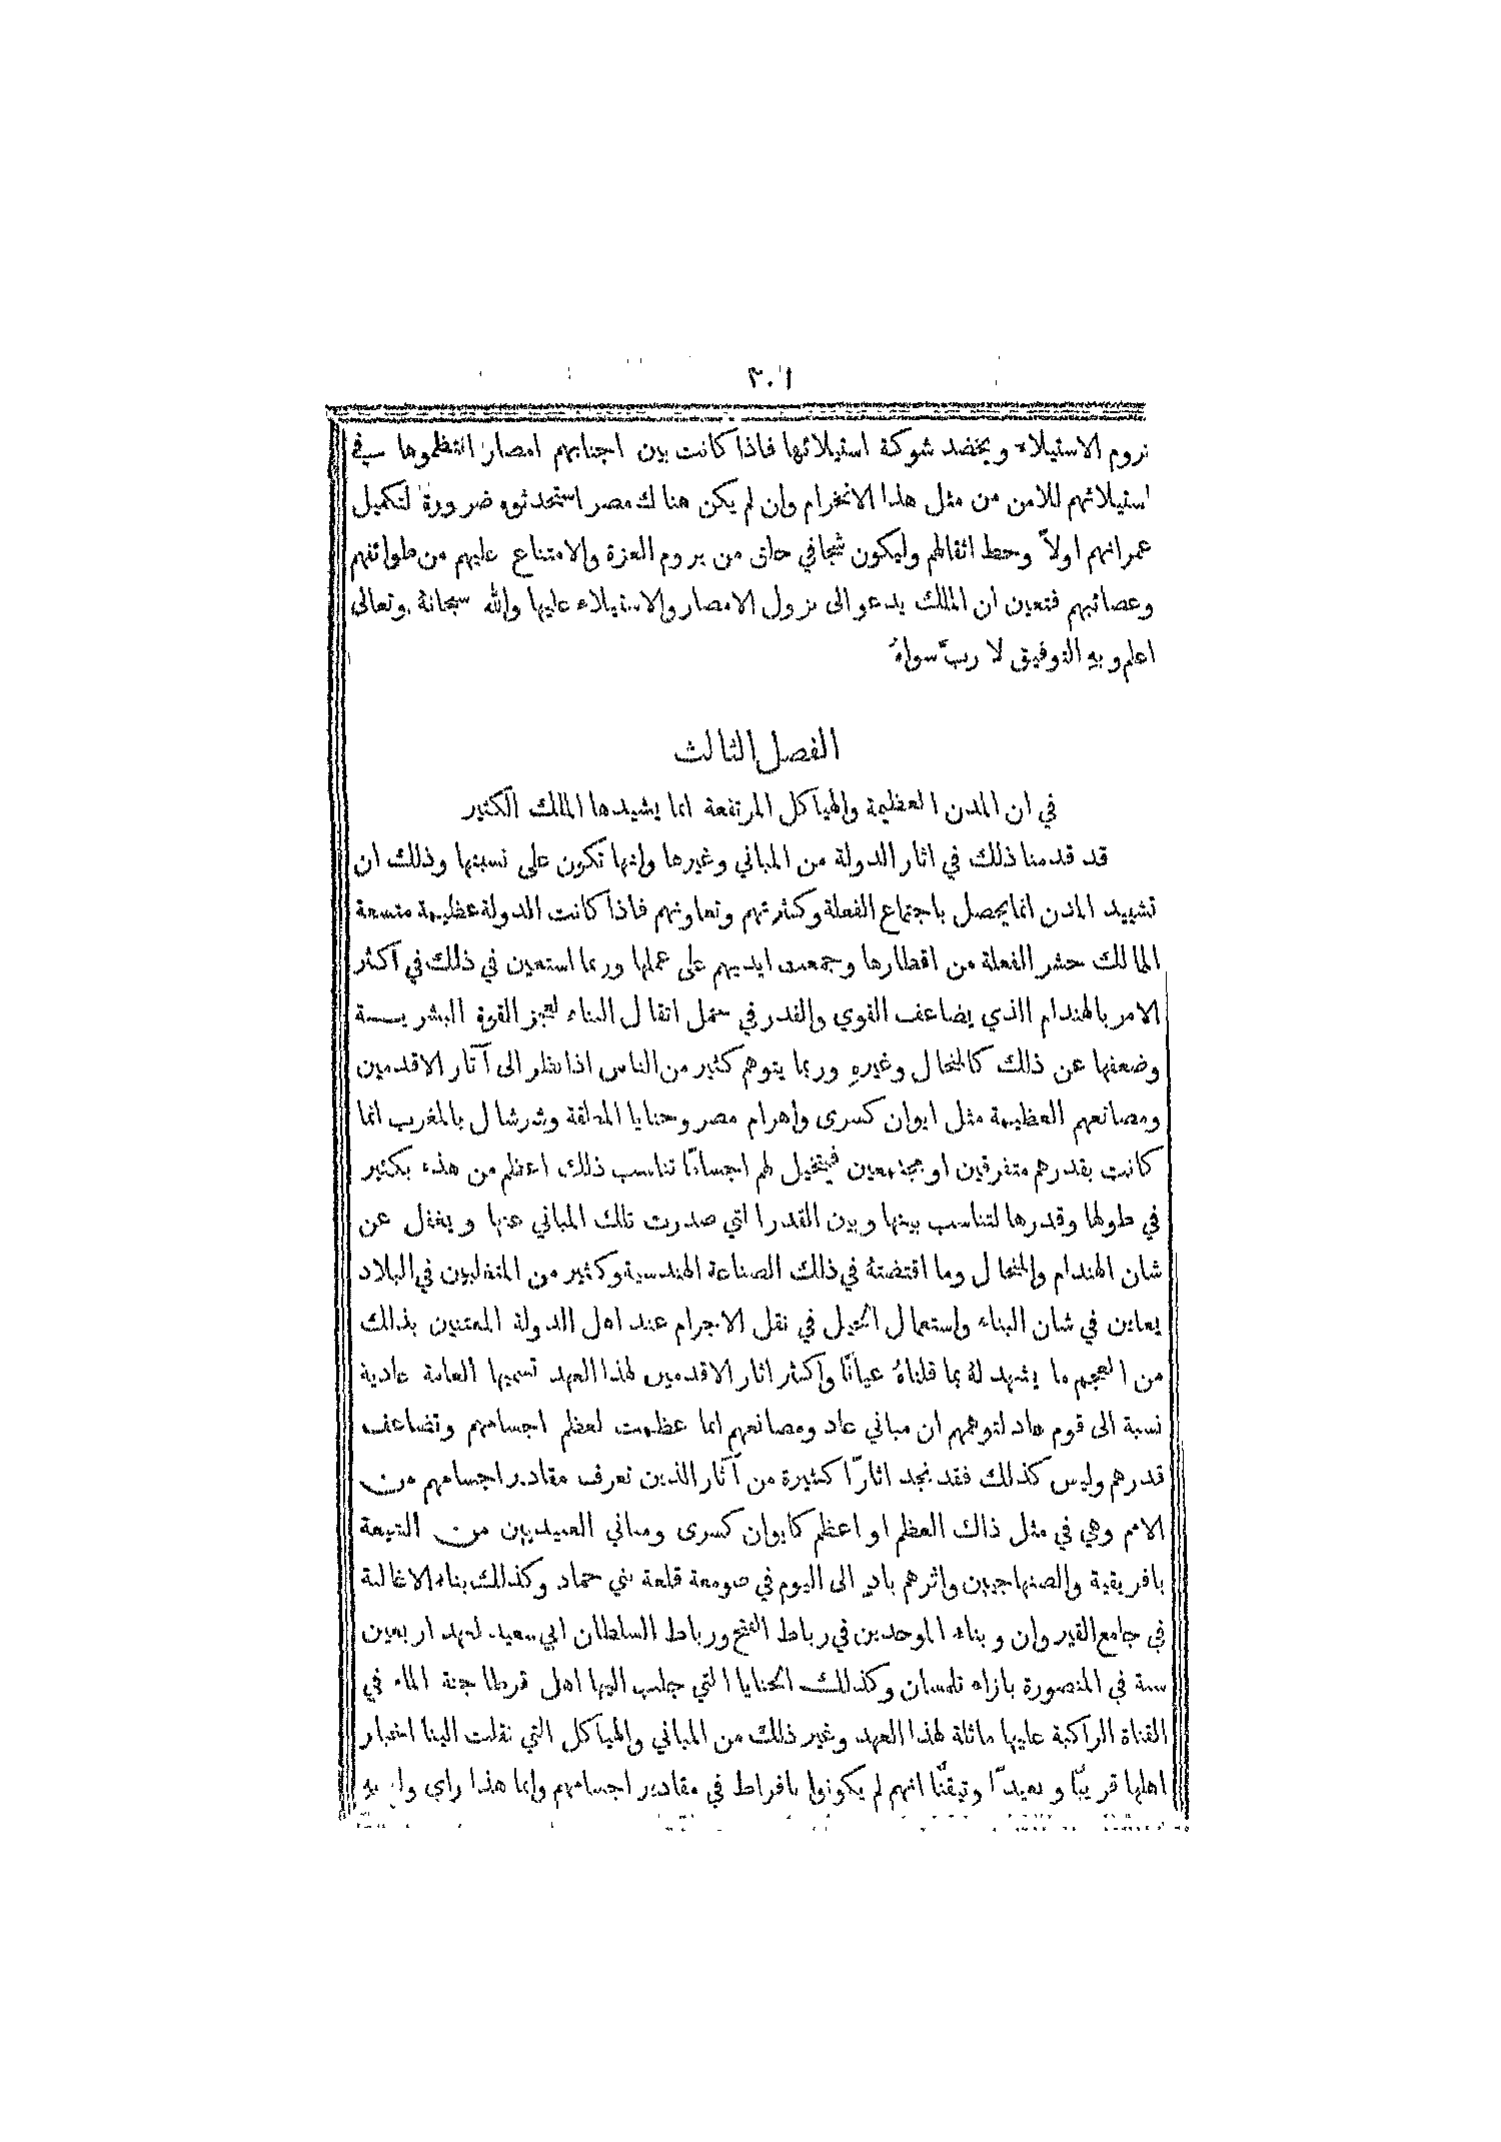 ٣٠١
تروم الاستيلاء ويخضد شوكة استيلائها فاذا كانت بين اجنابهم امصار انتظموها في
استيلائهم للامن من مثل هذا الانخرام وان لم يكن هناك مصر استحدثوه ضرورة لتكميل
عمرانهم اولاً وحط اثقالهم وليكون شجا في حلق من يروم العزة والامتناع عليهم من طوائفهم
وعصائبهم فتعين ان الملك يدعو الى نزول الامصار والاستيلاء عليها والله سبحانة وتعالى
اعلم وبهِ التوفيق لا ربّ سواهُ
الفصل الثالث
في ان المدن العظيمة والهياكل المرتفعة انما يشيدها الملك الكثير
قد قدمنا ذلك في اثار الدولة من المباني وغيرها وانها تكون على نسبتها وذلك ان
تشييد المدن انما يحصل باجتماع الفعلة وكثرتهم وتعاونهم فاذا كانت الدولة عظيمة متسعة
المالك حشر الفعلة من اقطارها وجمعت ايديهم على عملها وربما استعين في ذلك في اكثر
الامر بالهندام الذي يضاعف القوي والقدر في حمل اثقال البناء لعجز القوة البشرية
وضعفها عن ذلك كالمنحال وغيرهِ وربما يتوهم كثير من الناس اذا نظر الى آثار الاقدمين
ومصانعهم العظيمة مثل ايوان كسرى واهرام مصر وحنايا المعلقة وشرشال بالمغرب انما
كانت بقدرهم متفرقين او مجتمعين فيتخيل لهم اجسامًا تناسب ذلك اعظم من هذه بكثير
في طولها وقدرها لتناسب بينها وبين القدر التي صدرت تلك المباني عنها ويغفل عن
شان الهندام والمنحال وما اقتضتهُ في ذلك الصناعة الهندسية وكثير من المتغلبين في البلاد
يعاين في شان البناء واستعمال الحيل في نقل الاجرام عند اهل الدولة المعتنين بذلك
من العجم ما يشهد لهُ بما قلناهُ عيانًا واكثر اثار الاقدمين لهذا العهد تسميها العامة عادية
نسبة الى قوم عاد لتوهمهم ان مباني عاد ومصانعهم انما عظمت لعظم اجسامهم وتضاعف
قدرهم وليس كذلك فقد نجد اثارًا كثيرة من آثار الذين تعرف مقادير اجسامهم من
الامم وهي في مثل ذلك العظم او اعظم كايوان كسرى ومباني العبيديين من الشيعة
بافريقية والصنهاجيين واثرهم بادٍ الى اليوم في صومعة قلعة بني حماد وكذلك بناء الاغالبة
في جامع القيروان وبناء الموحدين في رباط الفتح ورباط السلطان ابي سعيد لعهد اربعين
سنة في المنصورة بازاء تلمسان وكذلك الحنايا التي جلب اليها اهل قرطاجنة الماء في
القناة الراكبة عليها ماثلة لهذا العهد وغير ذلك من المباني والهياكل التي نقلت الينا اخبار
اهلها قريبًا وبعيدًا وتيقنّا انهم لم يكونوا بافراط في مقادير اجسامهم وانما هذا راي